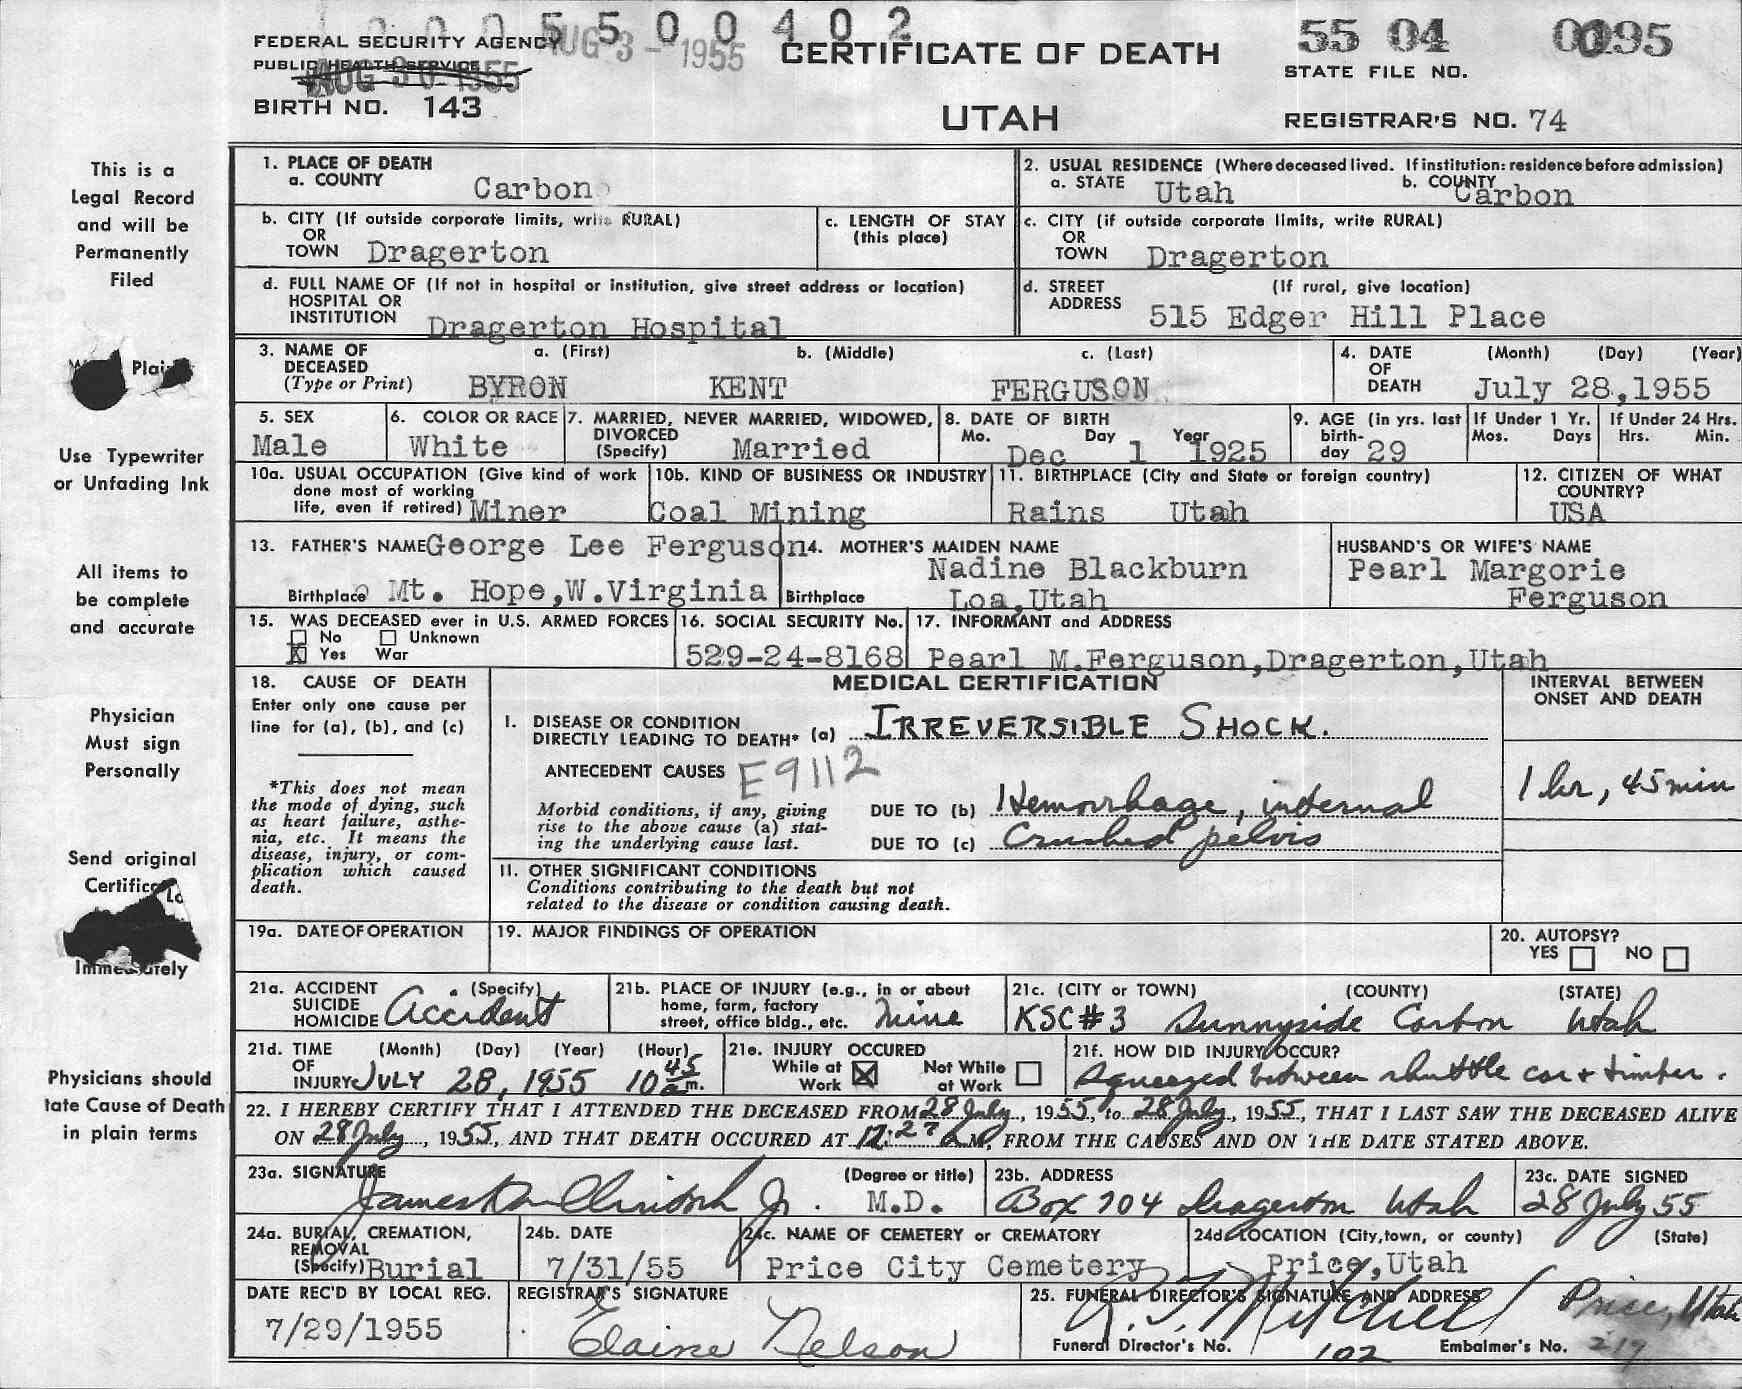 0 0 0 5 5 0 0 4 0 2
FEDERAL SECURITY AGENCY AUG 3 - 1955 CERTIFICATE OF DEATH 55 04 0095
PUBLIC HEALTH SERVICE AUG 30 1955 STATE FILE NO.
BIRTH NO. 143 UTAH REGISTRAR'S NO. 74
This is a
Legal Record
and will be
Permanently
Filed
Plai
Use Typewriter
or Unfading Ink
All items to
be complete
and accurate
Physician
Must sign
Personally
Send original
Certific
Lo
Immediately
Physicians should
tate Cause of Death
in plain terms
1. PLACE OF DEATH
a. COUNTY Carbon
2. USUAL RESIDENCE (Where deceased lived. If institution: residence before admission)
a. STATE Utah b. COUNTY Carbon
b. CITY (If outside corporate limits, write RURAL)
OR
TOWN Dragerton
c. LENGTH OF STAY
(this place)
c. CITY (if outside corporate limits, write RURAL)
OR
TOWN Dragerton
d. FULL NAME OF (If not in hospital or institution, give street address or location)
HOSPITAL OR
INSTITUTION Dragerton Hospital
d. STREET (If rural, give location)
ADDRESS 515 Edger Hill Place
3. NAME OF a. (First) b. (Middle) c. (Last)
DECEASED
(Type or Print) BYRON KENT FERGUSON
4. DATE (Month) (Day) (Year)
OF
DEATH July 28,1955
5. SEX
Male
6. COLOR OR RACE
White
7. MARRIED, NEVER MARRIED, WIDOWED,
DIVORCED
(Specify) Married
8. DATE OF BIRTH
Mo. Day Year
Dec 1 1925
9. AGE (in yrs. last
birth-
day 29
If Under 1 Yr.
Mos. Days
If Under 24 Hrs.
Hrs. Min.
10a. USUAL OCCUPATION (Give kind of work
done most of working
life, even if retired) Miner
10b. KIND OF BUSINESS OR INDUSTRY
Coal Mining
11. BIRTHPLACE (City and State or foreign country)
Rains Utah
12. CITIZEN OF WHAT
COUNTRY?
USA
13. FATHER'S NAME George Lee Ferguson
Birthplace Mt. Hope,W.Virginia
14. MOTHER'S MAIDEN NAME
Nadine Blackburn
Birthplace Loa,Utah
HUSBAND'S OR WIFE'S NAME
Pearl Margorie
Ferguson
15. WAS DECEASED ever in U.S. ARMED FORCES
No Unknown
X Yes War
16. SOCIAL SECURITY No.
529-24-8168
17. INFORMANT and ADDRESS
Pearl M.Ferguson,Dragerton,Utah
18. CAUSE OF DEATH
Enter only one cause per
line for (a), (b), and (c)
*This does not mean
the mode of dying, such
as heart failure, asthe-
nia, etc. It means the
disease, injury, or com-
plication which caused
death.
MEDICAL CERTIFICATION
I. DISEASE OR CONDITION
DIRECTLY LEADING TO DEATH* (a) IRREVERSIBLE SHOCK.
ANTECEDENT CAUSES E9112
Morbid conditions, if any, giving
rise to the above cause (a) stat-
ing the underlying cause last.
DUE TO (b) Hemorrhage, internal
DUE TO (c) Crushed pelvis
INTERVAL BETWEEN
ONSET AND DEATH
1 hr, 45 min
II. OTHER SIGNIFICANT CONDITIONS
Conditions contributing to the death but not
related to the disease or condition causing death.
19a. DATE OF OPERATION
19. MAJOR FINDINGS OF OPERATION
20. AUTOPSY?
YES NO
21a. ACCIDENT (Specify)
SUICIDE
HOMICIDE Accident
21b. PLACE OF INJURY (e.g., in or about
home, farm, factory
street, office bldg., etc. Mine
21c. (CITY or TOWN) (COUNTY) (STATE)
KSC #3 Sunnyside Carbon Utah
21d. TIME (Month) (Day) (Year) (Hour)
OF
INJURY JULY 28, 1955 10 45 a.m.
21e. INJURY OCCURED
While at Work X Not While at Work
21f. HOW DID INJURY OCCUR?
Squeezed between shuttle car + timber.
22. I HEREBY CERTIFY THAT I ATTENDED THE DECEASED FROM 28 July, 1955, to 28 July, 1955, THAT I LAST SAW THE DECEASED ALIVE
ON 28 July, 1955, AND THAT DEATH OCCURED AT 12:27 M, FROM THE CAUSES AND ON THE DATE STATED ABOVE.
23a. SIGNATURE (Degree or title)
James Jr. M.D.
23b. ADDRESS
Box 704 Dragerton Utah
23c. DATE SIGNED
28 July 55
24a. BURIAL, CREMATION,
REMOVAL
(Specify) Burial
24b. DATE
7/31/55
24c. NAME OF CEMETERY or CREMATORY
Price City Cemetery
24d. LOCATION (City,town, or county) (State)
Price,Utah
DATE REC'D BY LOCAL REG.
7/29/1955
REGISTRAR'S SIGNATURE
Elaine Nelson
25. FUNERAL DIRECTOR'S SIGNATURE AND ADDRESS
Mitchell Price, Utah
Funeral Director's No. 102 Embalmer's No. 219